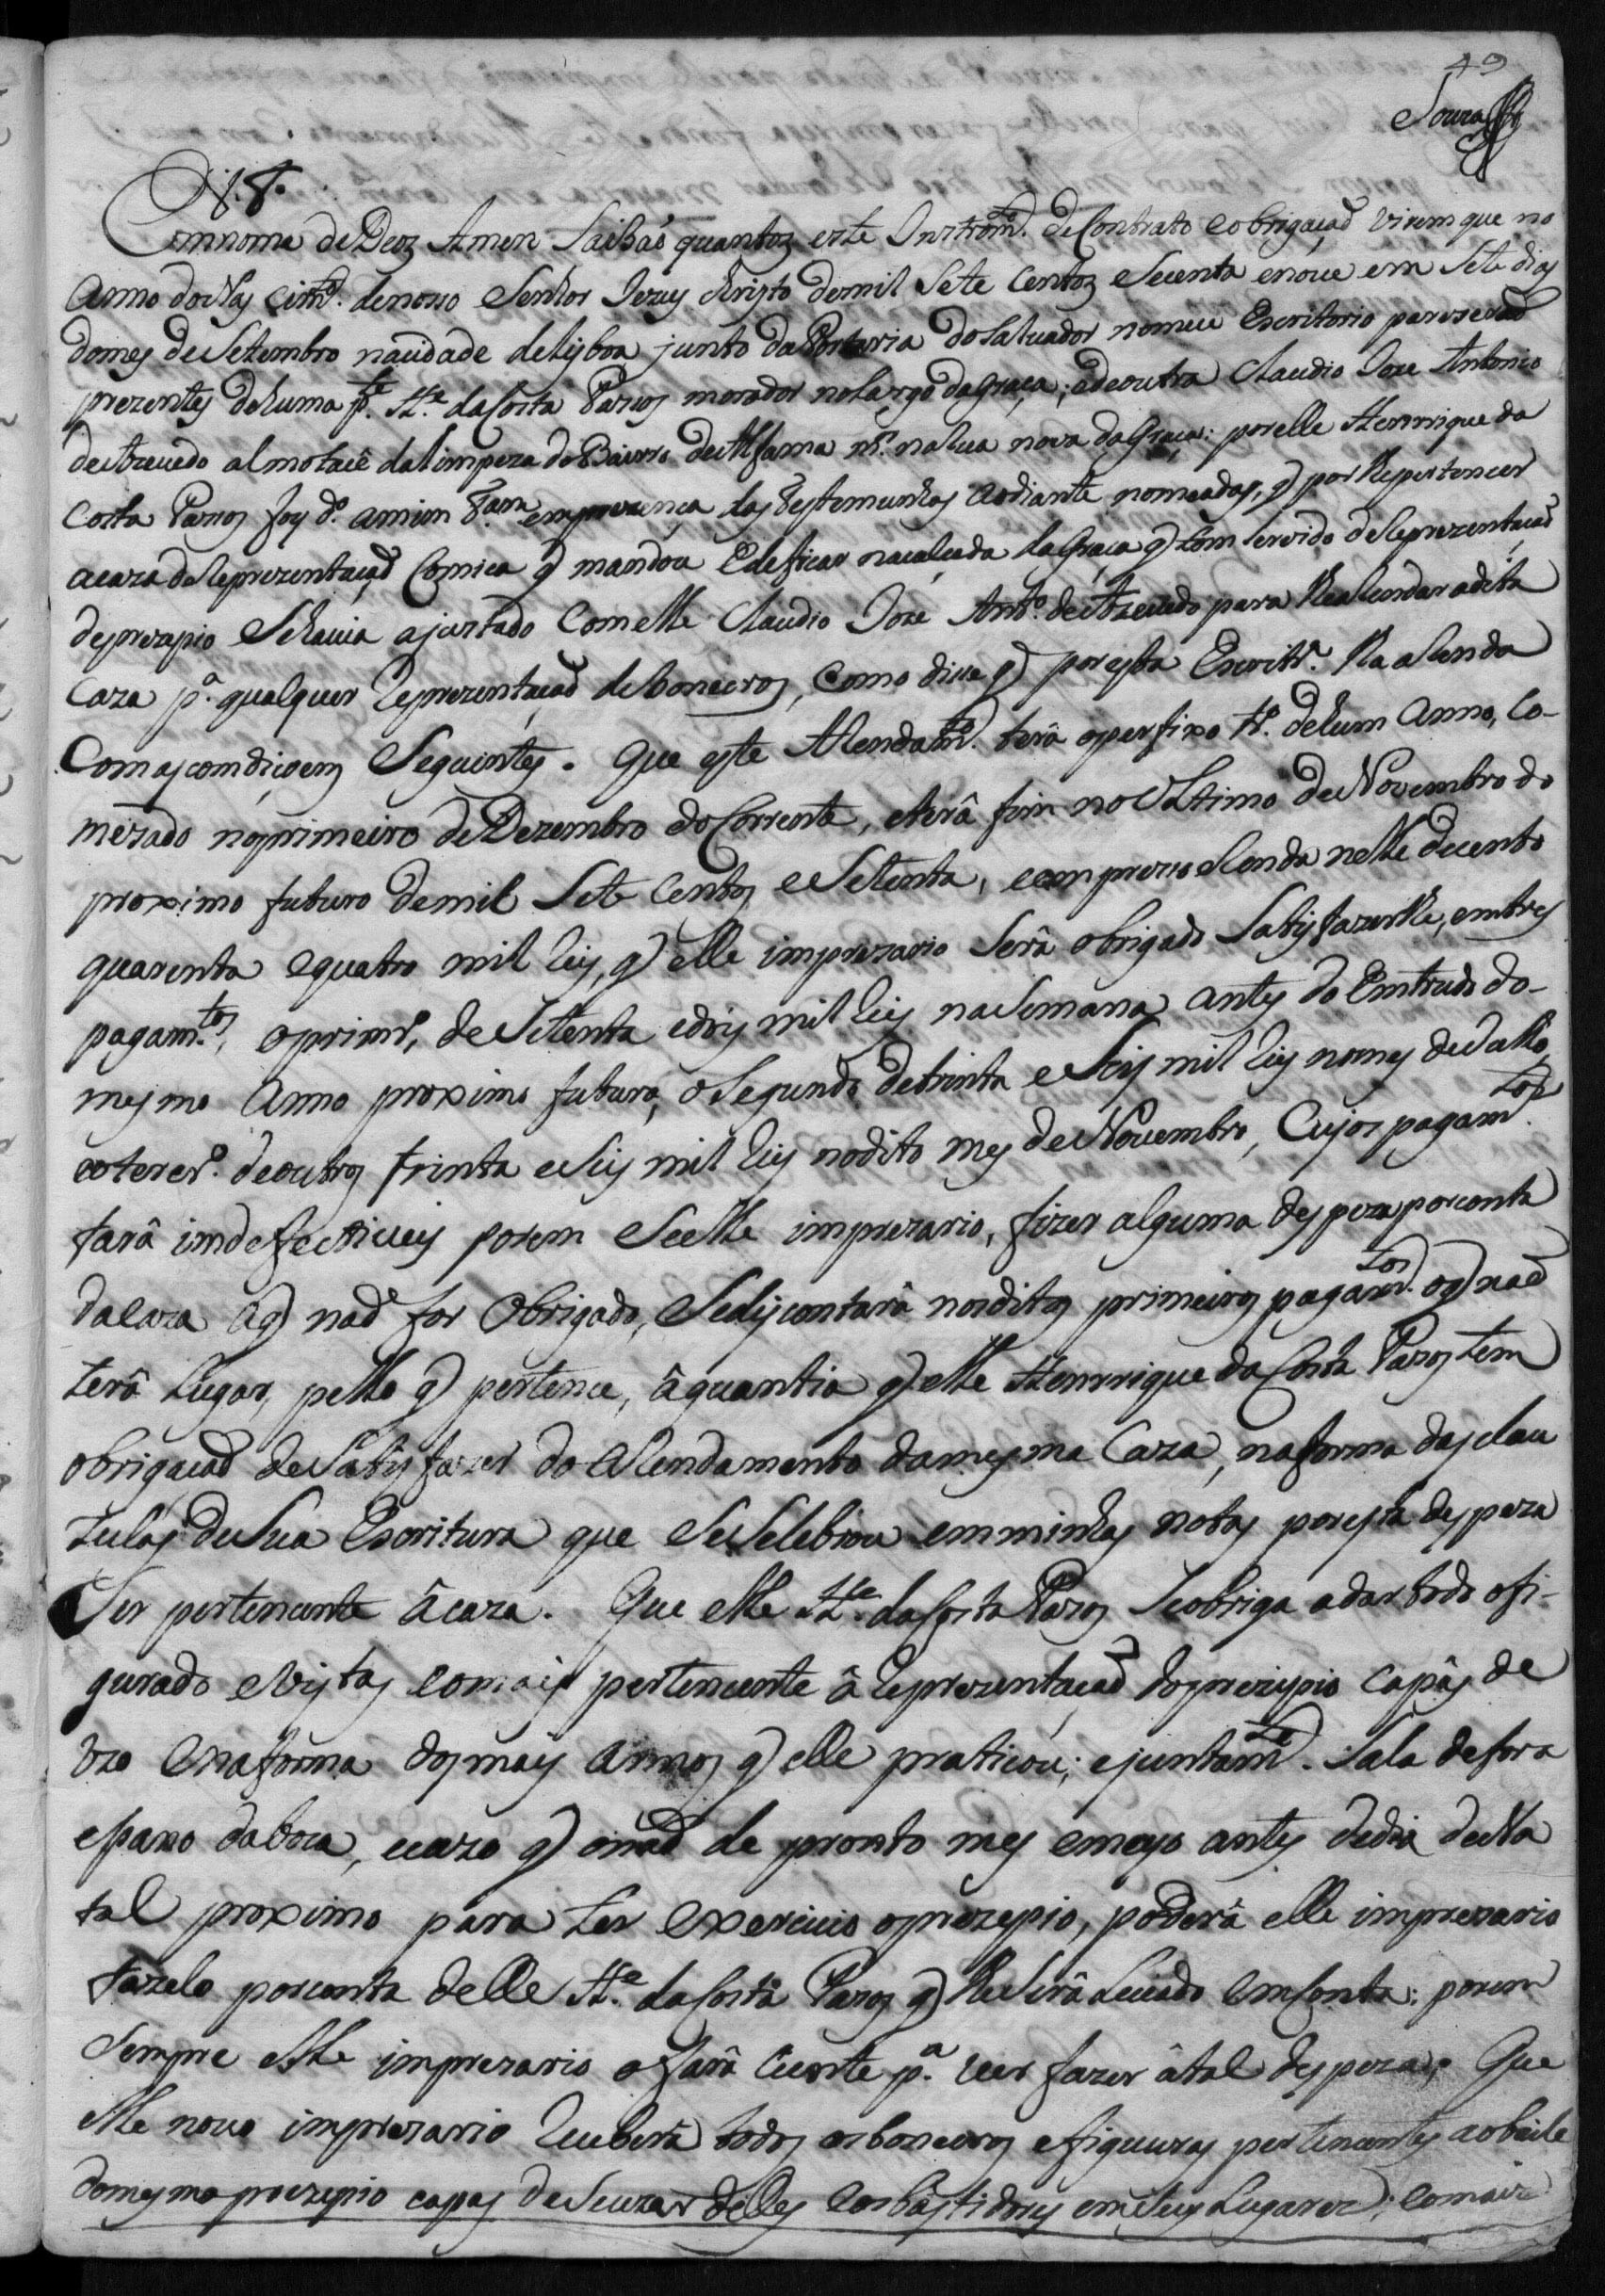 49
Souza
N. 8.
Em nome de Deoz Amen Saibaó quantoz este Instrom.to de Contrato e obrigaçaõ virem que no
Anno do Nascim.to de nosso Senhor Jezus Christo de mil Sete Centoz e Secenta e nove em Sete dias
do mes de Setembro na cidade de Lisboa junto da Portaria do Salvador no meu Escritorio pareceraõ
prezentes de huma p.te H.e da Costa Passos morador no Largo da Graça; e de outra Claudio Joze Antonio
de Azevedo almotacê da limpeza do Bairro de Alfama m.or na Rua nova da Graça: por elle Henrrique da
Costa Passos foy d.o a mim T.am em prezença das Testemunhas ao diante nomeadas, q por lhe pertencer
a caza de Reprezentaçaõ Comica q mandou Edeficar na calçada da Graça q tem servido de Reprezentaçaõ
de prezepio Se havia ajustado Com elle Claudio Joze Ant.o de Azevedo para lhe a Rendar a dita
Caza p.a qualquer Reprezentaçaõ de bonecros, Como dice q por esta Escrit.a lha a Renda
Com as comdiçoens Seguintes. Que este A Rendam.to terâ o perfixo tr.o de hum Anno, Co-
mesado no primeiro de Dezembro do Corrente, e terâ fim no Ultimo de Novembro do
proximo futuro de mil Sete Centos e Setenta, e em prezo e Renda nelle de cento
quarenta e quatro mil Reis, q elle imprezario Serâ obrigado Satisfazerlhe, em tres
pagam.tos, o prim.ro, de Setenta e dois mil Reis na Semana antes do Entrudo do
mesmo Anno proximo futuro, o Segundo de trinta e Seis mil Reis no mes de Julho,
e o tercr.o de outros trinta e Seis mil Reis no dito mes de Novembro, Cujos pagam.tos
farâ imdefectiveis porem Se elle imprezario, fizer alguma despeza por conta
da caza a q naõ for Obrigado, Se discontarâ nos ditos primeiros pagam.tos o q naõ
terâ Lugar, pello q pertence, â quantia q elle Henrrique da Costa Passos tem
obrigaçaõ de Satisfazer do a Rendamento da mesma Caza, na forma das clau
zulas de Sua Escritura que Se Selebrou em minhas notas por esta despeza
Ser pertencente â caza. Que elle H.e da Costa Passos Se obriga a dar todo o fi-
gurado e vistas e o mais pertencente â Reprezentaçaõ do prezepio capâs de
uzo e na forma dos mais annos q elle praticou; e juntam.te Sala de fora
e pano da boca, e cazo q o naõ de pronto mes e meyo antes do dia de Na
tal proximo para ter exercicio o prezepio, poderâ elle imprezario
fazelo por conta delle H.e da Costa Passos q lhe Serâ Levado em Conta: porem
Sempre elle imprezario o farâ Ciente p.a ver fazer â tal despeza; Que
elle novo imprezario Receberâ todos os bonecros e figuras pertencentes ao baile
do mesmo prezepio capas de Se uzar delles e os bastidores em Seus Lugares; e o mais